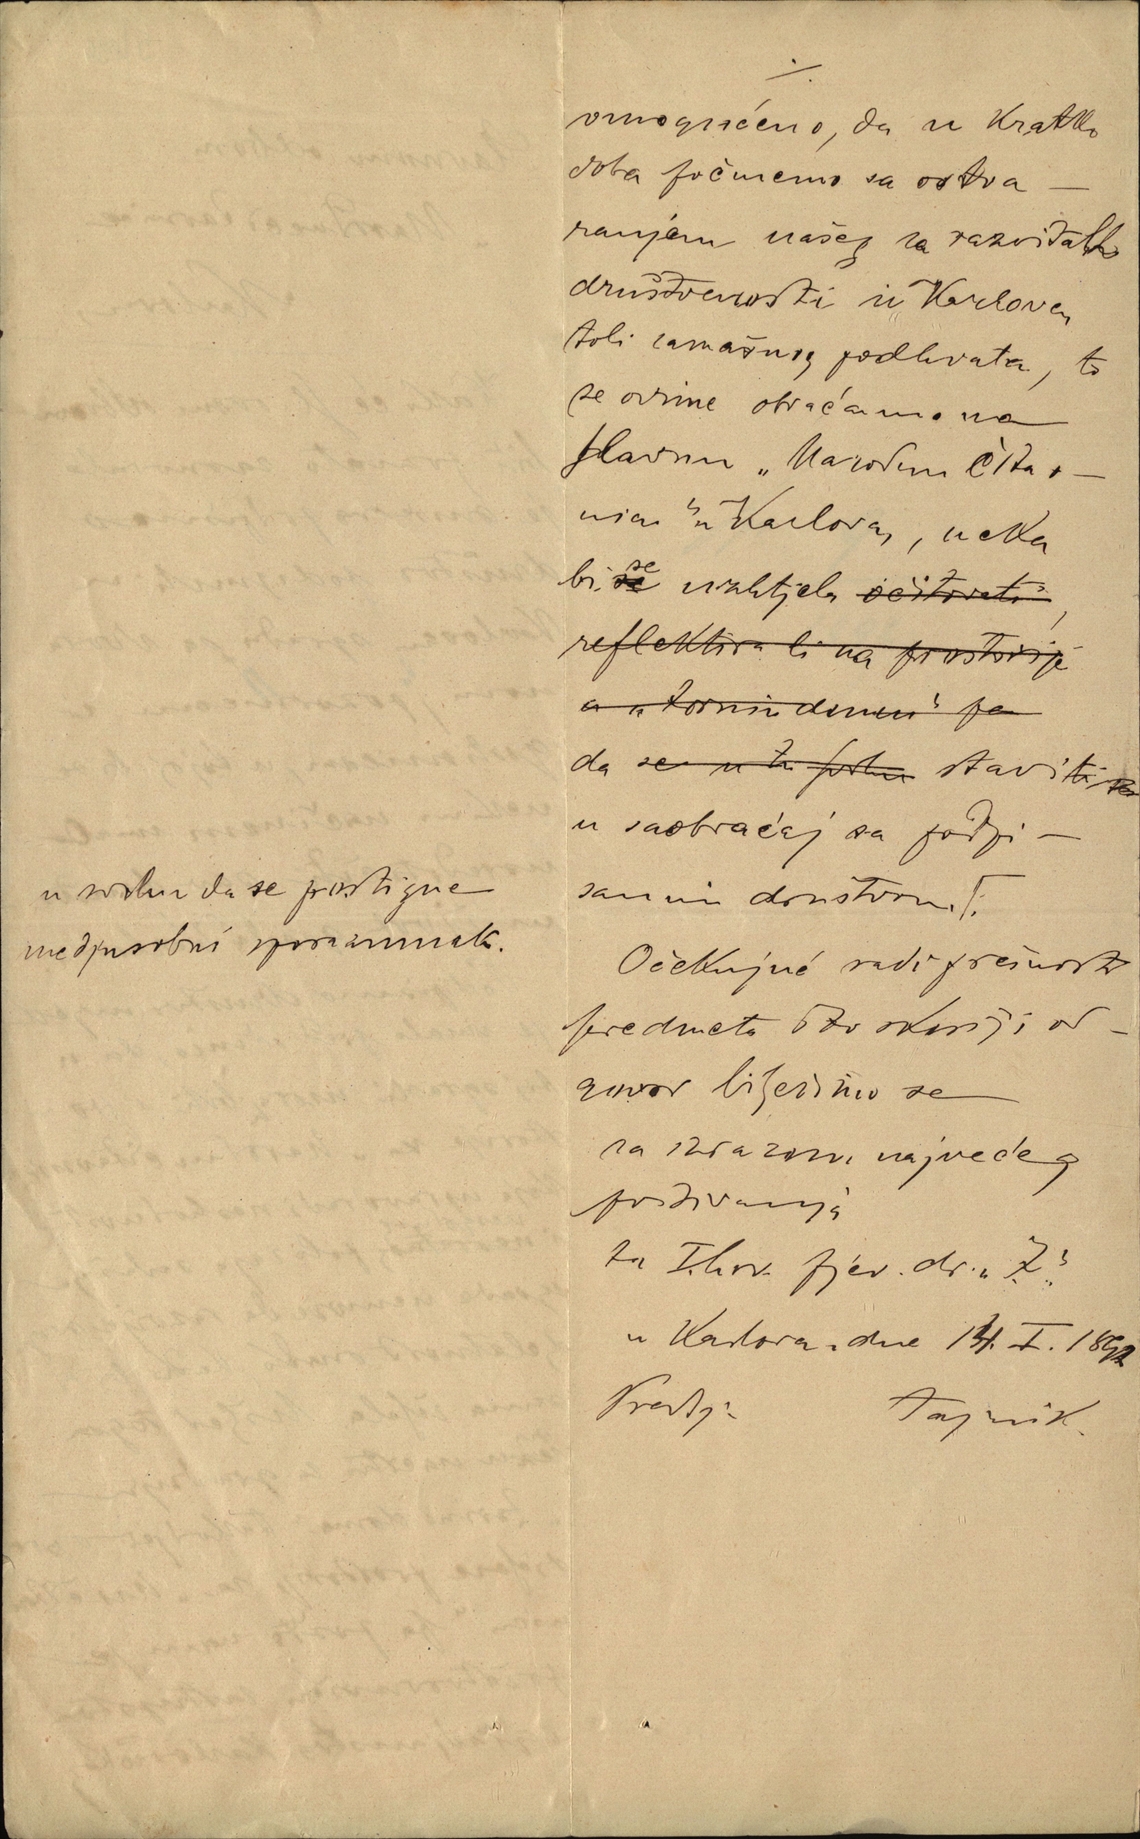 ./.
omogućeno, da u kratko
doba počmemo sa ostva-
ranjem našeg za razvitak
društvenosti u Karlovcu
toli zamašnog podhvata, to
se ovime obraćamo na
slavnu „Narodnu Čitao-
nicu“ u Karlovcu, neka
bi se se uzhtjela očitovati,
reflektira li na prostorije
u „Zornindomu“ pa
da se u tu svrhu staviti
u saobraćaj sa podpi-
sanim društvom.
u svrhu da se postigne
medjusobni sporazumak.
Očekujuć radi prešnosti
predmeta što skoriji od-
govor bilježimo se
sa izrazom najvećeg
poštivanja
za I. hrv. pjev. dr. „Z.“
u Karlovcu dne 14. I. 1892
Predsj. Tajnik.